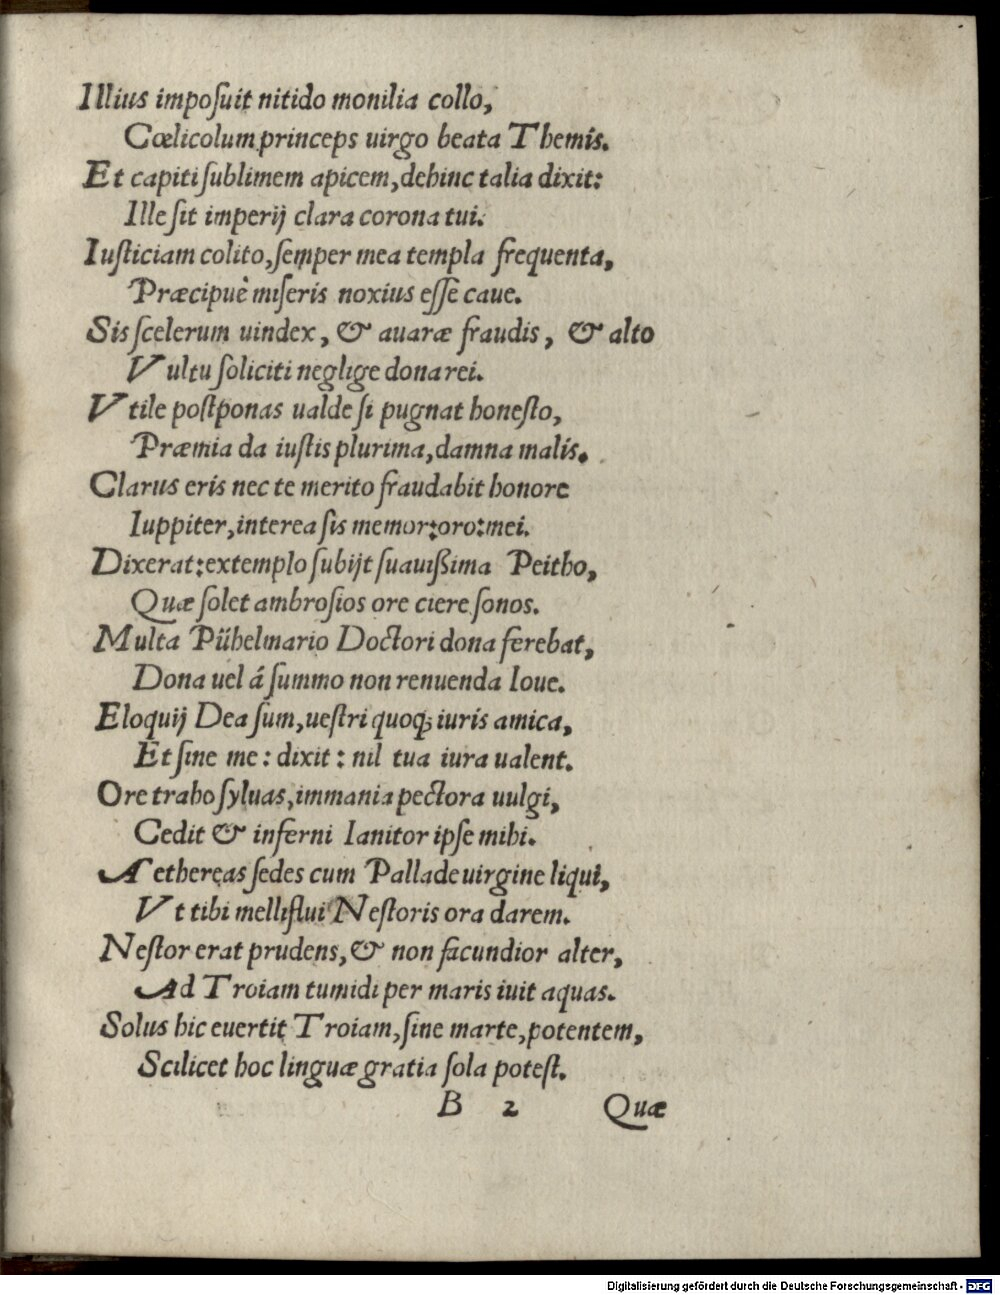 Illius imposuit nitido monilia collo,
Cœlicolum princeps uirgo beata Themis.
Et capiti sublimem apicem, dehinc talia dixit:
Ille sit imperij clara corona tui.
Iusticiam colito, semper mea templa frequenta,
Præcipuè miseris noxius esse caue.
Sis scelerum uindex, & auaræ fraudis, & alto
Vultu soliciti neglige dona rei.
Vtile postponas ualde si pugnat honesto,
Præmia da iustis plurima, damna malis.
Clarus eris nec te merito fraudabit honore
Iuppiter, interea sis memor: oro: mei.
Dixerat: extemplo subijt suauißima Peitho,
Quæ solet ambrosios ore ciere sonos.
Multa Pühelmario Doctori dona ferebat,
Dona uel á summo non renuenda Ioue.
Eloquij Dea sum, uestri quoq; iuris amica,
Et sine me: dixit: nil tua iura ualent.
Ore traho syluas, immania pectora uulgi,
Cedit & inferni Ianitor ipse mihi.
Aethereas sedes cum Pallade uirgine liqui,
Vt tibi melliflui Nestoris ora darem.
Nestor erat prudens, & non facundior alter,
Ad Troiam tumidi per maris iuit aquas.
Solus hic euertit Troiam, sine marte, potentem,
Scilicet hoc linguæ gratia sola potest.
B 2 Quæ
Digitalisierung gefördert durch die Deutsche Forschungsgemeinschaft - DFG